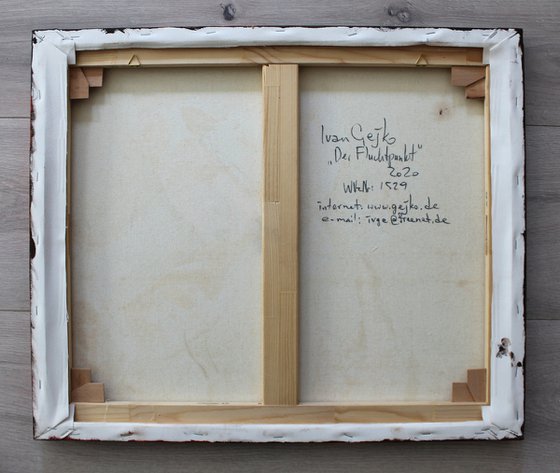 Ivan Gejko
„Der Fluchtpunkt"
2020
1529
internet: www.gejko.de
e-mail: ivge@freenet.de